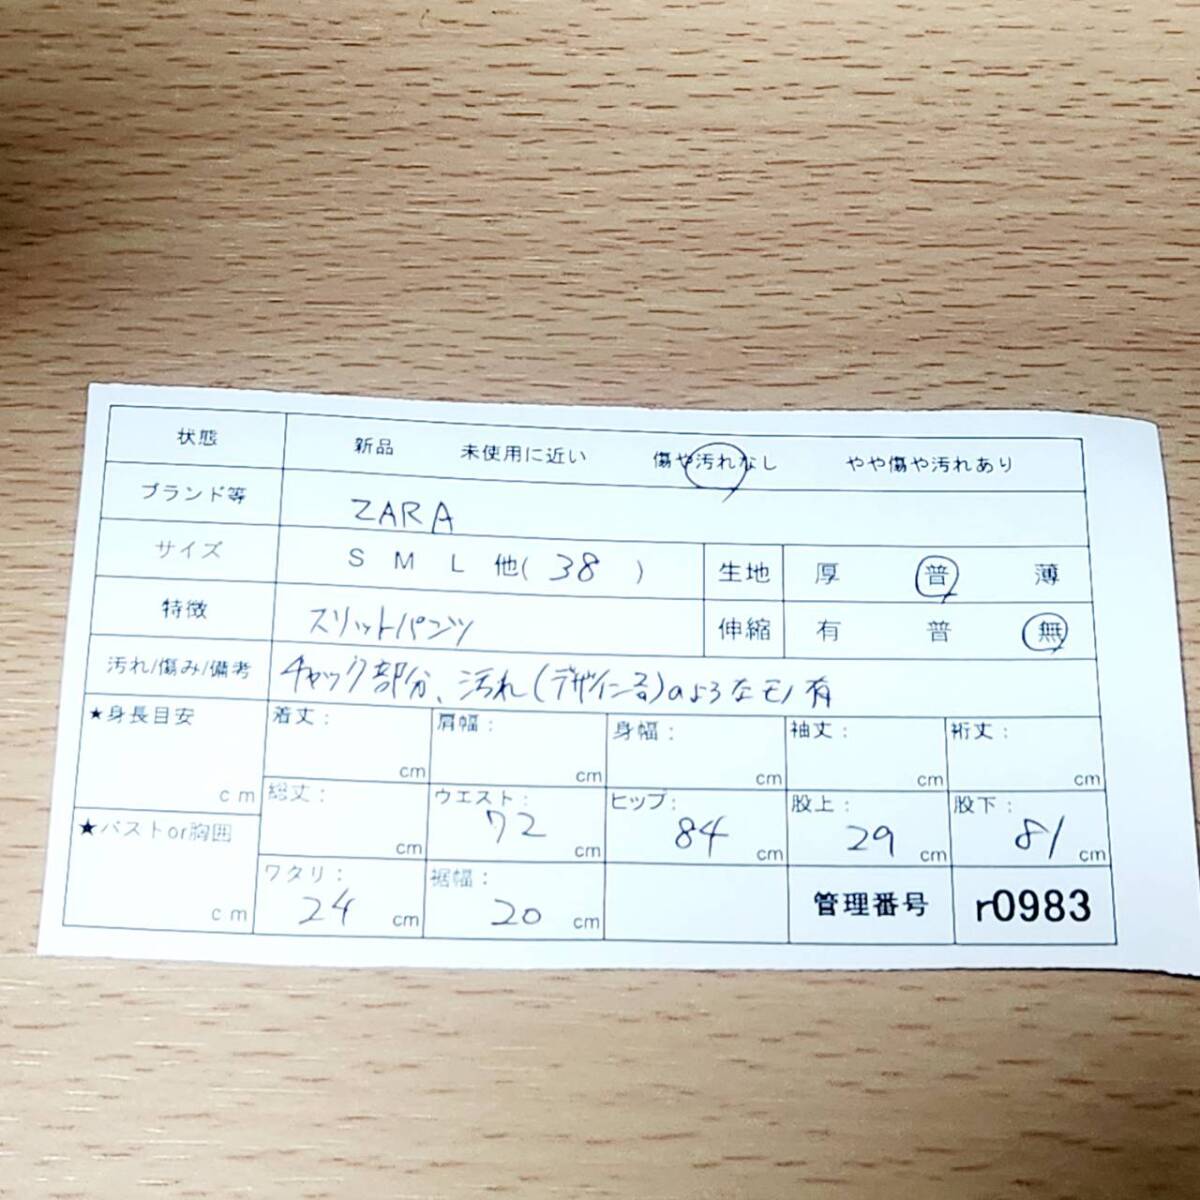 状態 新品 未使用に近い 傷や汚れなし やや傷や汚れあり
ブランド等 ZARA
サイズ S M L 他( 38 ) 生地 厚 普 薄
特徴 スリットパンツ 伸縮 有 普 無
汚れ/傷み/備考 チャック部分、汚れ(デザイン)のようなモノ有
★身長目安 cm 着丈: cm 肩幅: cm 身幅: cm 袖丈: cm 裄丈: cm
総丈: cm ウエスト: 72 cm ヒップ: 84 cm 股上: 29 cm 股下: 81 cm
★バストor胸囲 cm ワタリ: 24 cm 裾幅: 20 cm 管理番号 r0983